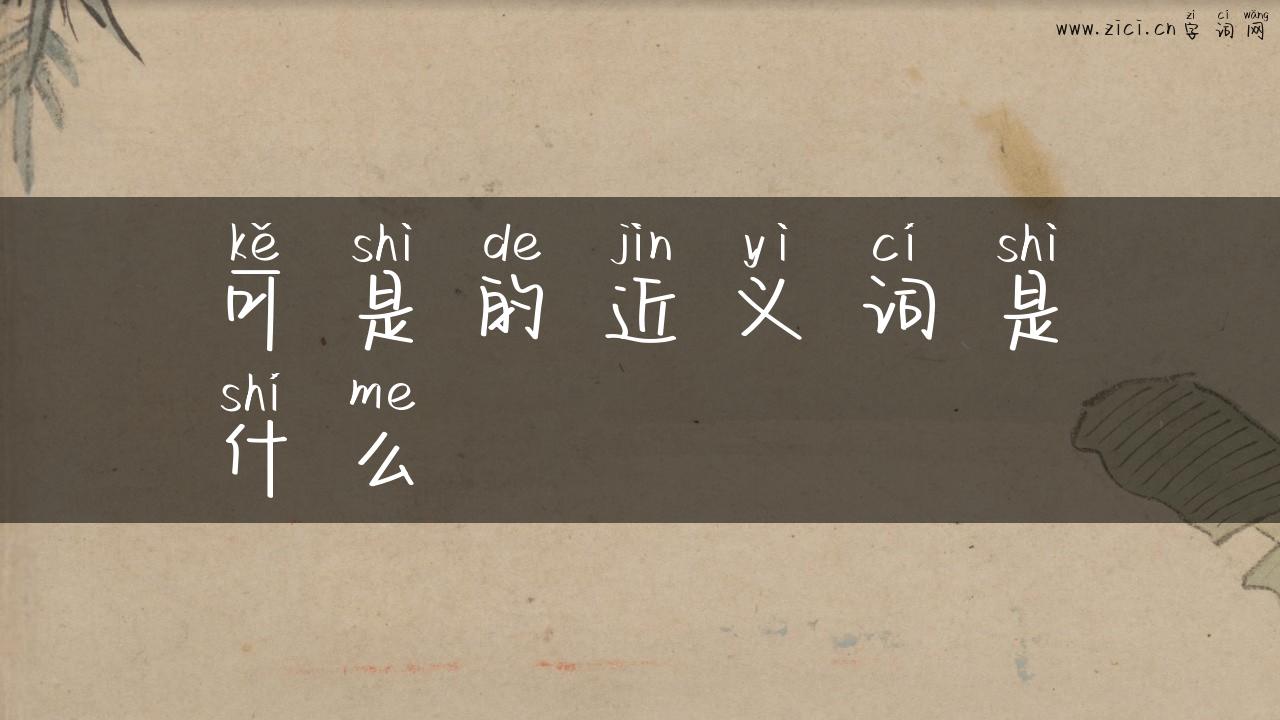 zì cí wǎng
www.zici.cn 字词网
kě shì de jìn yì cí shì
可是的近义词是
shí me
什么